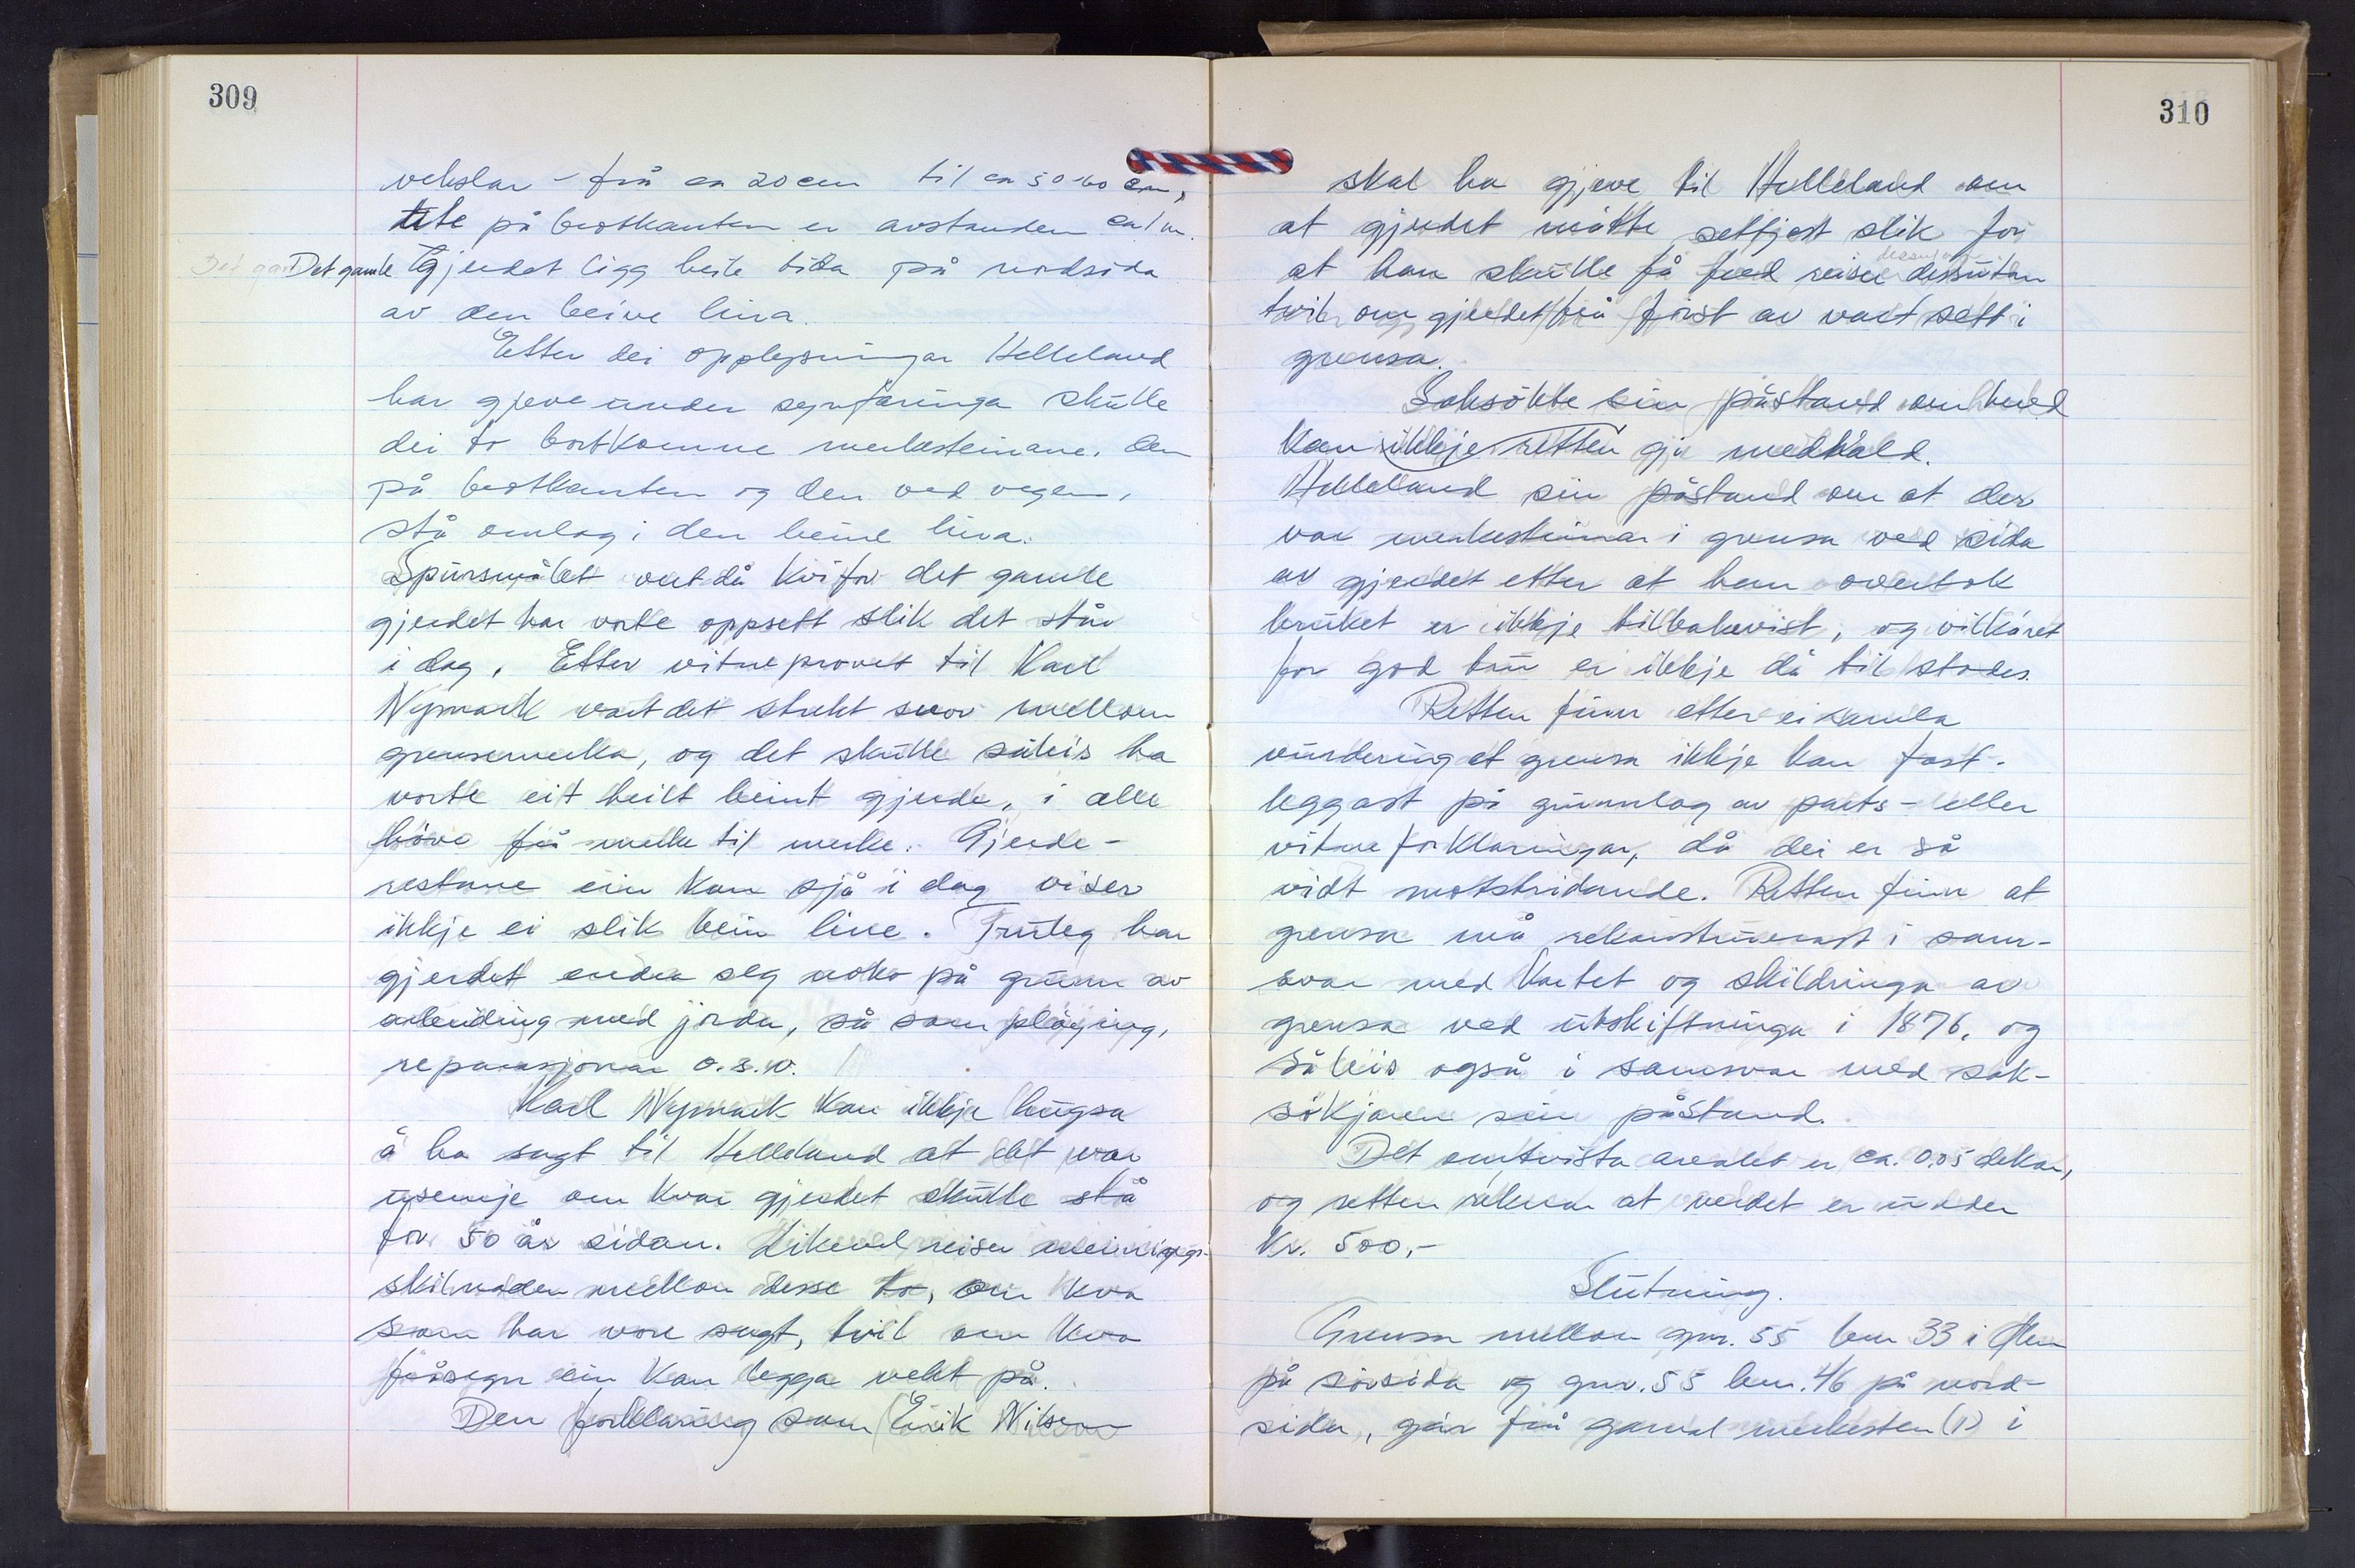 309
vekslar - frå ca 20 cm til ca 50-60 cm,
ute på brotkanten er avstanden ca 1 m.
Det gamle gjerdet ligg heile tida på nordsida
av den beine lina.
Etter dei opplysningar Helleland
har gjeve under synfaringa skulle
dei to bortkomne merkesteinane, den
på brotkanten og den ved vegen,
stå omlag i den beine lina.
Spursmålet vert då kvifor det gamle
gjerdet har vorte oppsett slik det står
i dag. Etter vitneprovet til Karl
Nymark vart det strekt snor mellom
grensemerka, og det skulle såleis ha
vorte eit heilt beint gjerde, i alle
høve frå merke til merke. Gjerde-
restane ein kan sjå i dag viser
ikkje ei slik bein line. Truleg har
gjerdet endra seg noko på grunn av
arbeiding med jorda, så som pløying,
reparasjonar o.s.v.
Karl Nymark kan ikkje hugsa
å ha sagt til Helleland at det var
usemje om kvar gjerdet skulle stå
for 50 år sidan. Likevel reiser meinings-
skilnaden mellom desse to, om kva
som har vore sagt, tvil om kva
fråsegn ein kan legga vekt på.
Den forklaring som Eirik Nilsson
310
skal ha gjeve til Helleland om
at gjerdet måtte settjast slik for
at han skulle få fred reiser dessutan
tvil om gjerdet frå først av vart sett i
grensa.
Saksøkte sin påstand om hevd
kan ikkje retten gje medhald.
Helleland sin påstand om at der
var merkesteinar i grensa ved sida
av gjerdet etter at han overtok
bruket er ikkje tilbakevist, og vilkåret
for god tru er ikkje då til stades.
Retten finn etter ei samla
vurdering at grensa ikkje kan fast-
leggast på grunnlag av parts- eller
vitneforklaringar, då dei er så
vidt motstridande. Retten finn at
grensa må rekonstruerast i sam-
svar med kartet og skildringa av
grensa ved utskiftninga i 1876, og
såleis også i samsvar med sak-
søkjaren sin påstand.
Det omtvista arealet er ca. 0,05 dekar,
og retten reknar at verdet er under
Kr. 500,-
Slutning.
Grensa mellom gnr. 55 bnr 33 i
på sørsida og gnr. 55 bnr. 46 på nord-
sida, går frå gamal merkestein (1) i